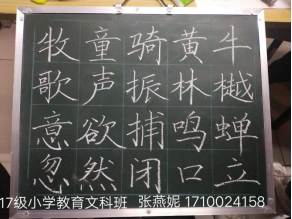 牧童骑黄牛
歌声振林樾
意欲捕鸣蝉
忽然闭口立
17级小学教育文科班 张燕妮 1710024158